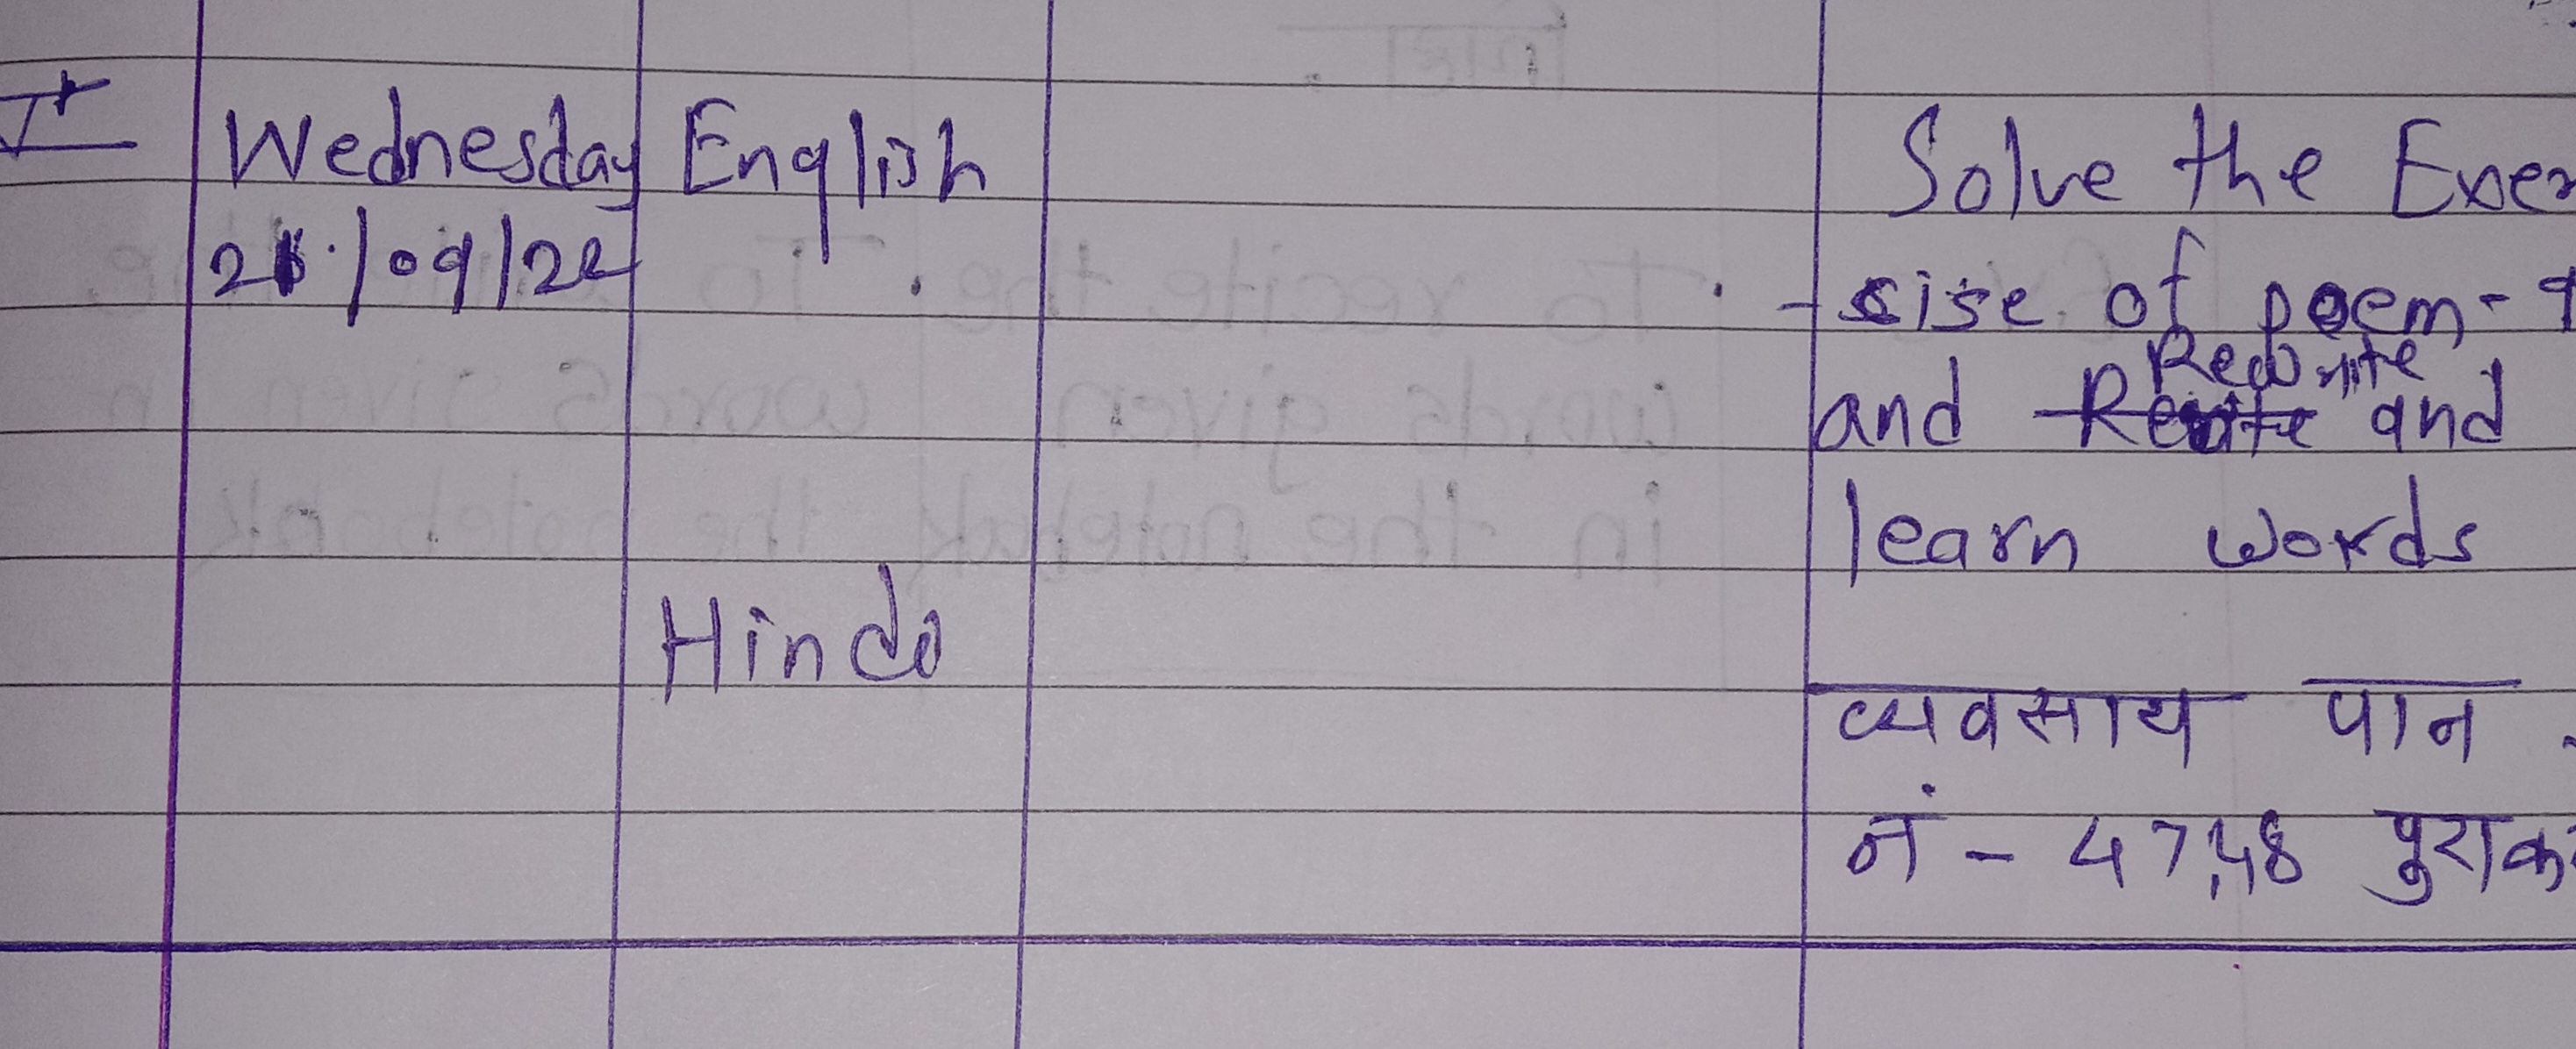 I
Wednesday English Solve the Exer
21/09/22 -cise of poem-9
Rewrite
and and
learn words
Hindi
व्यवसाय पान
नं - 47,48 पुराक